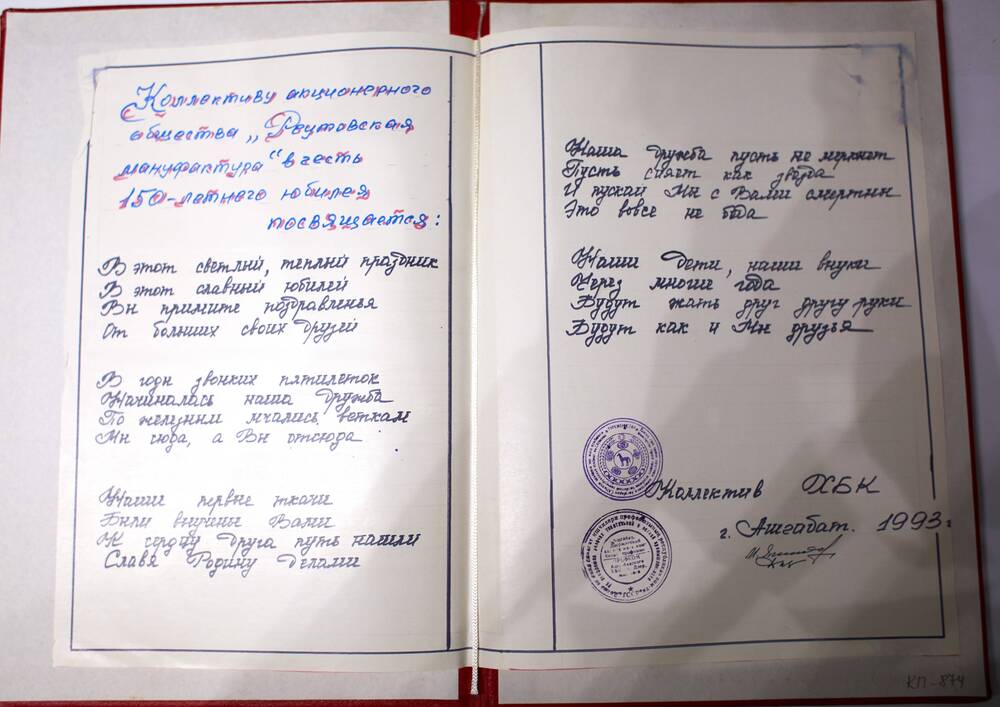 Коллективу акционерного
общества „Реутовская
мануфактура" в честь
150-летнего юбилея
посвящается:
В этот светлый, теплый праздник
В этот славный юбилей
Вы примите поздравленья
От больших своих друзей
В годы звонких пятилеток
Начиналась наша дружба
По железным мчались веткам
Мы сюда, а Вы отсюда
Наши первые ткачи
Были внучены Вами
К сердцу друга путь нашли
Славя Родину делами
Наша дружба пусть не меркнет
Пусть сияет как звезда
И пускай Мы с Вами смертны
Это вовсе не беда
Наши дети, наши внуки
Через многие года
Будут жать друг другу руки
Будут как и Мы друзья
Коллектив ХБК
г. Ашгабат. 1993 г.
КП-874